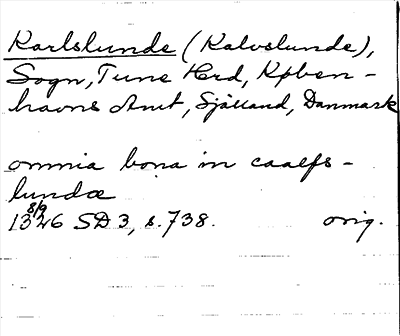 Karlslunde (Kalvslunde),
Sogn, Tune Hrd, Køben-
havns Amt, Själland, Danmark
omnia bona in caalfs-
lundæ
8/9
1346 SD 3, s. 738. orig.